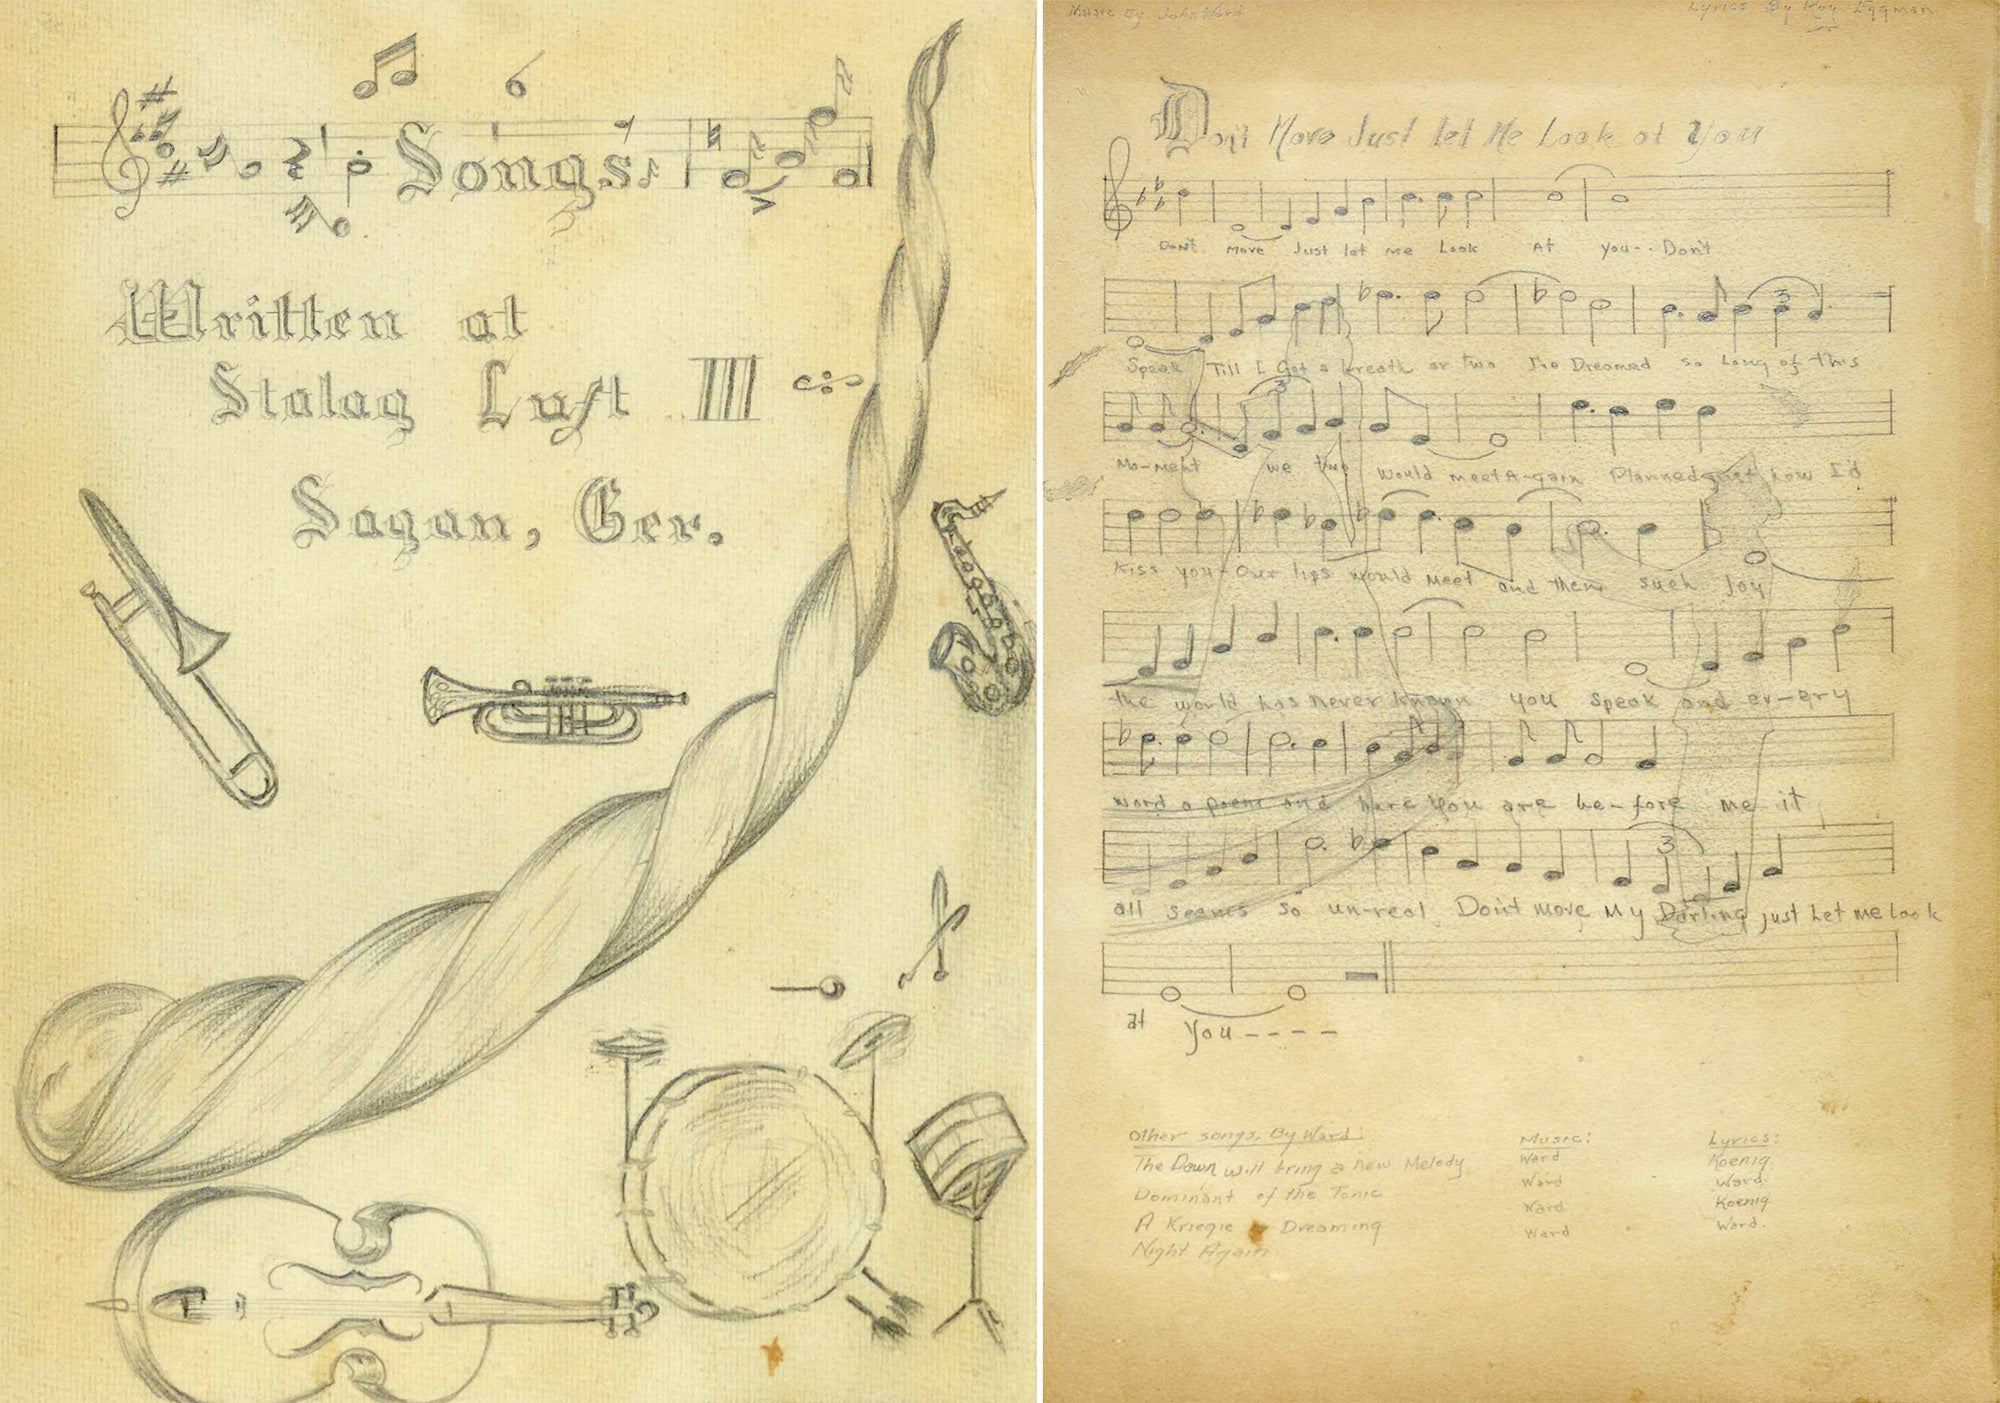 Songs
Written at
Stalag Luft III
Sagan, Ger.
Music By John Ward
Lyrics By Roy Eggman
Don't Move Just let Me Look at You
Don't Move Just let me Look At You-- Don't
Speak Till I Get a breath or two I've Dreamed so Long of this
Mo-ment we two would meet A-gain Planned just how I'd
kiss you- Our lips would meet and then such joy
the world has never known you speak and ev-ery
word a poem and here you are be-fore me it
all seems so un-real Don't move My Darling just Let me look
at You----
Other songs. By Ward: Music: Lyrics:
The Dawn will bring a new Melody Ward Koenig.
Dominant of the Tonic Ward Ward.
A Kriegie Dreaming Ward Koenig
Night Again Ward Ward.